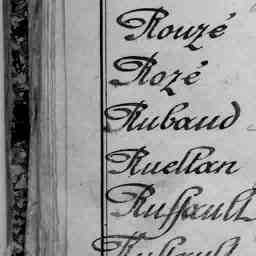 Rouzé
Rozé
Rubaud
Ruellan
Ruffault